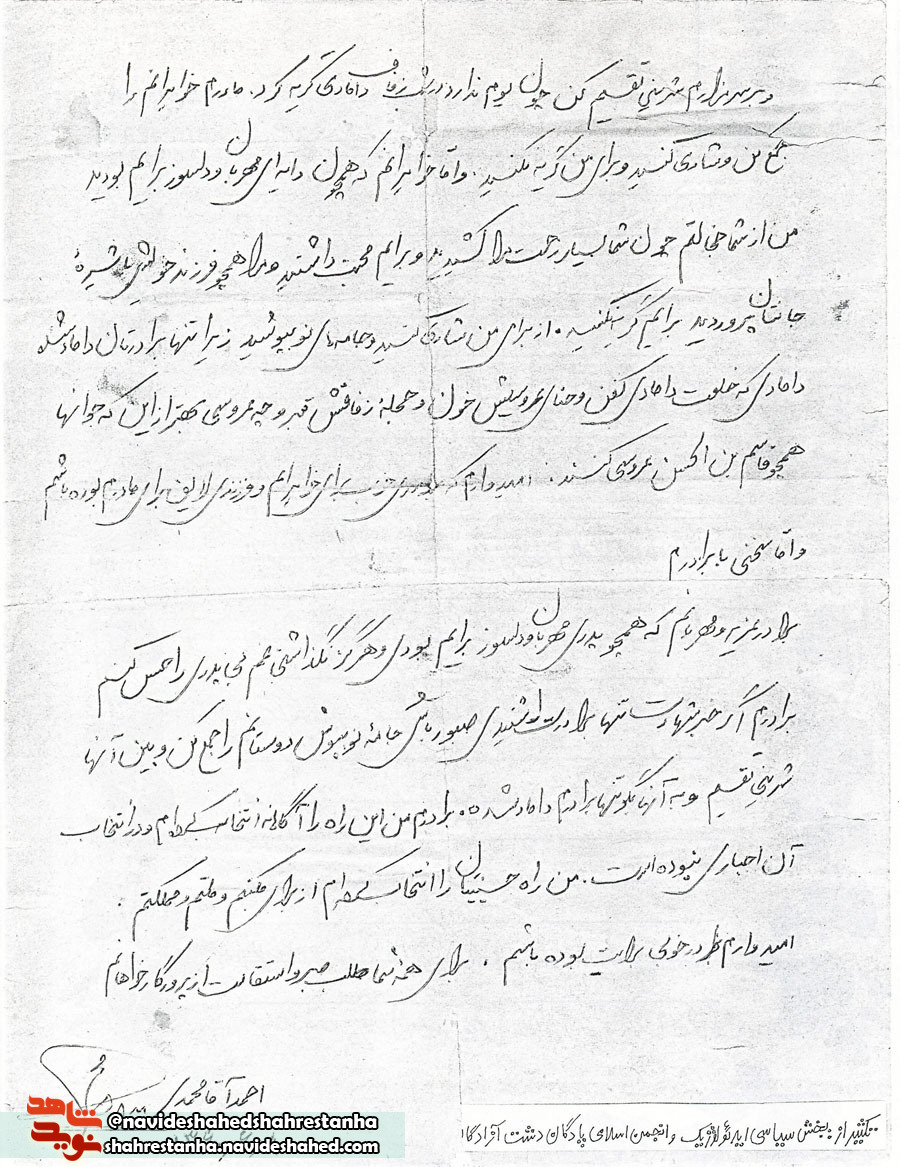 و بر سر مزارم شیرینی تقسیم کن چون لزوم ندارد در شب زفاف دامادی گریه کرد. مادرم خواهرانم را
جمع کن و شادی کنید و برای من گریه نکنید. و اما خواهرانم که همچون دایه ای مهربان و دلسوز برایم بودید
من از شما خجالتم چون شما بسیار زحمت مرا کشیدید و برایم محبت داشتید و مرا همچو فرزند خویش با شیرهٔ
جانتان پروردید برایم گریه نکنید. از برای من شادی کنید و جامه های نو بپوشید زیرا تنها برادرتان داماد شده
دامادی که خلعت دامادی کفن و حنای عروسیش خون و حجلهٔ زفافش قبر و چه عروسی بهتر از این که جوانها
همچو قاسم بن الحسن عروسی کنند. امیدوارم که برادری خوب برای خواهرانم و فرزندی لایق برای مادرم بوده باشم
و اما سخنی با برادرم
برادر عزیز و مهربانم که همچو پدری مهربان و دلسوز برایم بودی و هرگز نگذاشتی غم بی پدری را حس کنم
برادرم اگر خبر شهادت تنها برادرت را شنیدی صبور باش جامهٔ نو بپوش دوستانم را جمع کن و بین آنها
شیرینی تقسیم و به آنها بگو تنها برادرم داماد شده. برادرم من این راه را آگاهانه انتخاب کرده ام و در انتخاب
آن اجباری نبوده است. من راه حسینیان را انتخاب کرده ام از برای مکتبم و ملتم و مملکتم.
امیدوارم برادر خوبی برایت بوده باشم. برای همهٔ شما طلب صبر و استقامت از پروردگار خواهانم
احمد آقامحمدی
تکثیر از بخش سیاسی ایدئولوژیک و انجمن اسلامی پادگان دشت آزادگان
نوید شاهد
@navideshahedshahrestanha
shahrestanha.navideshahed.com